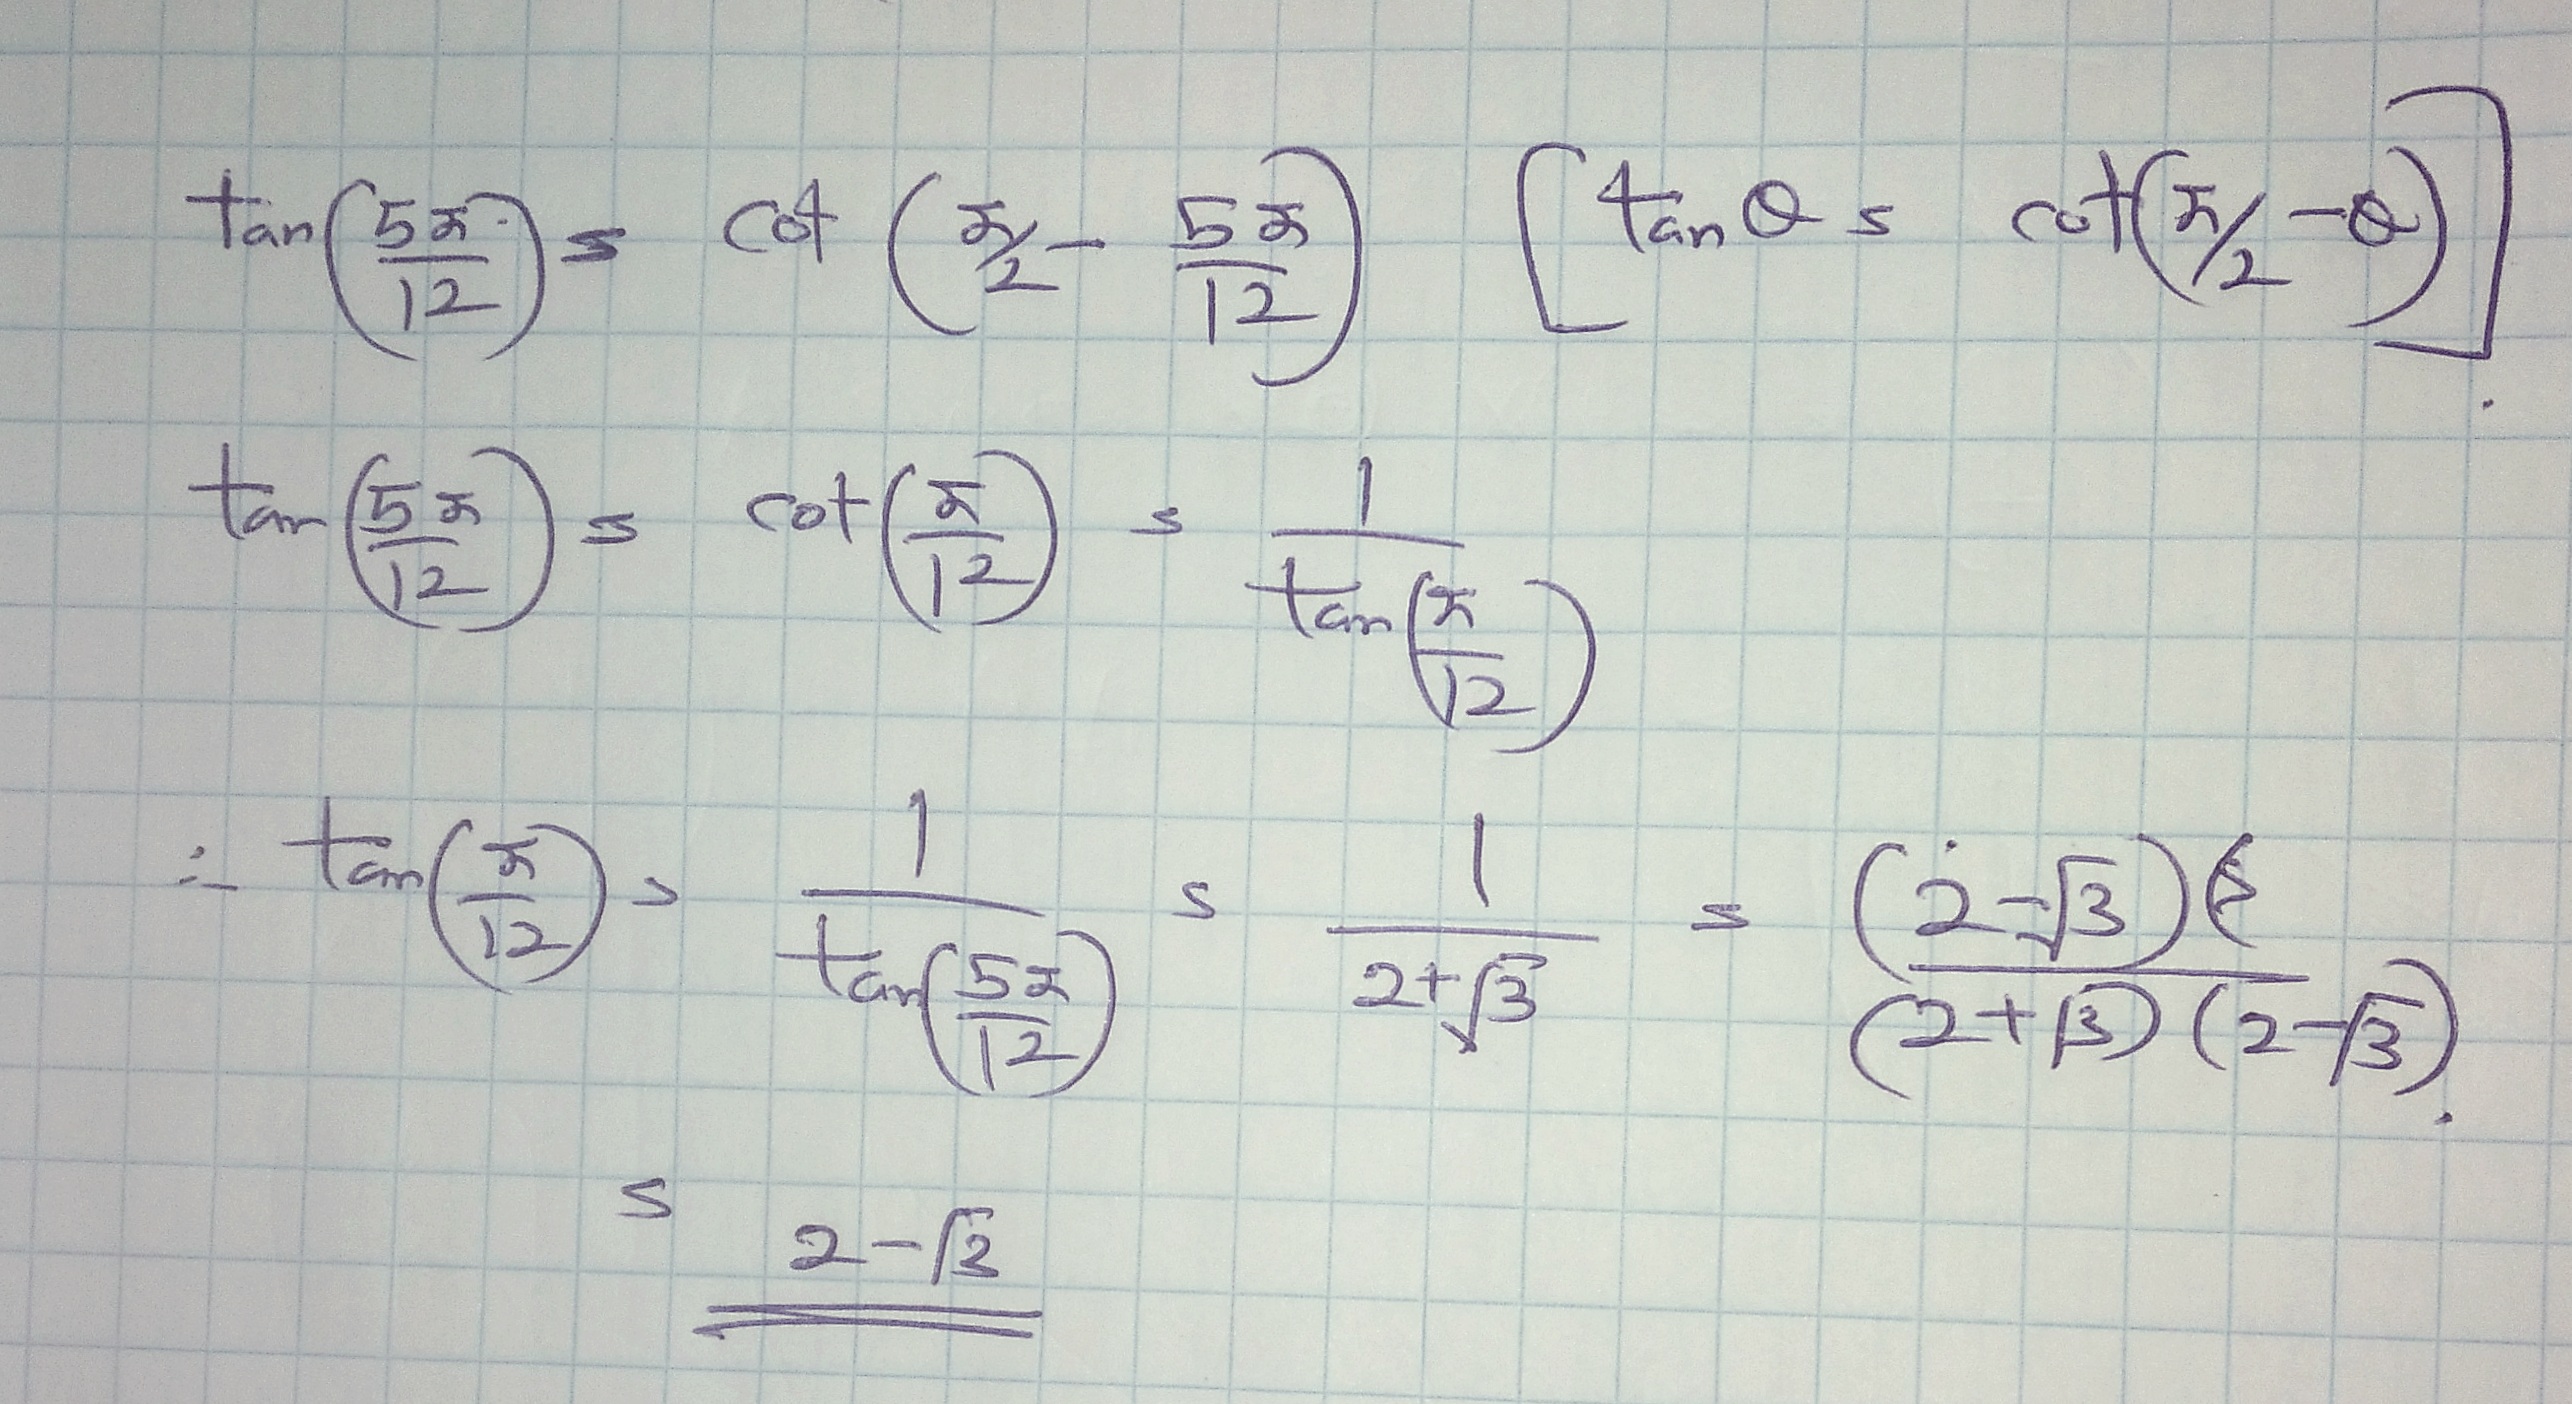 tan(5π/12) = cot(π/2 - 5π/12) [tan θ = cot(π/2 - θ)]
tan(5π/12) = cot(π/12) = 1/tan(π/12)
∴ tan(π/12) = 1/tan(5π/12) = 1/(2+√3) = (2-√3)/((2+√3)(2-√3)).
= 2-√3